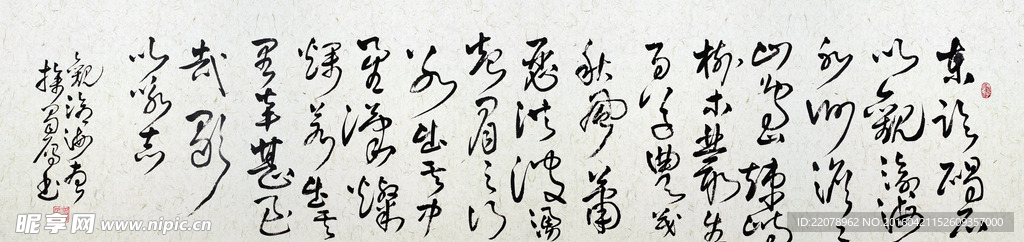 東臨碣石
以觀滄海
水何澹澹
山島竦峙
樹木叢生
百草豐茂
秋風蕭
瑟洪波湧
起日月之行
若出其中
星漢燦
爛若出其
里幸甚至
哉歌
以詠志
觀滄海曹
操 書
昵享网 www.nipic.cn
NO:20160421152609357000